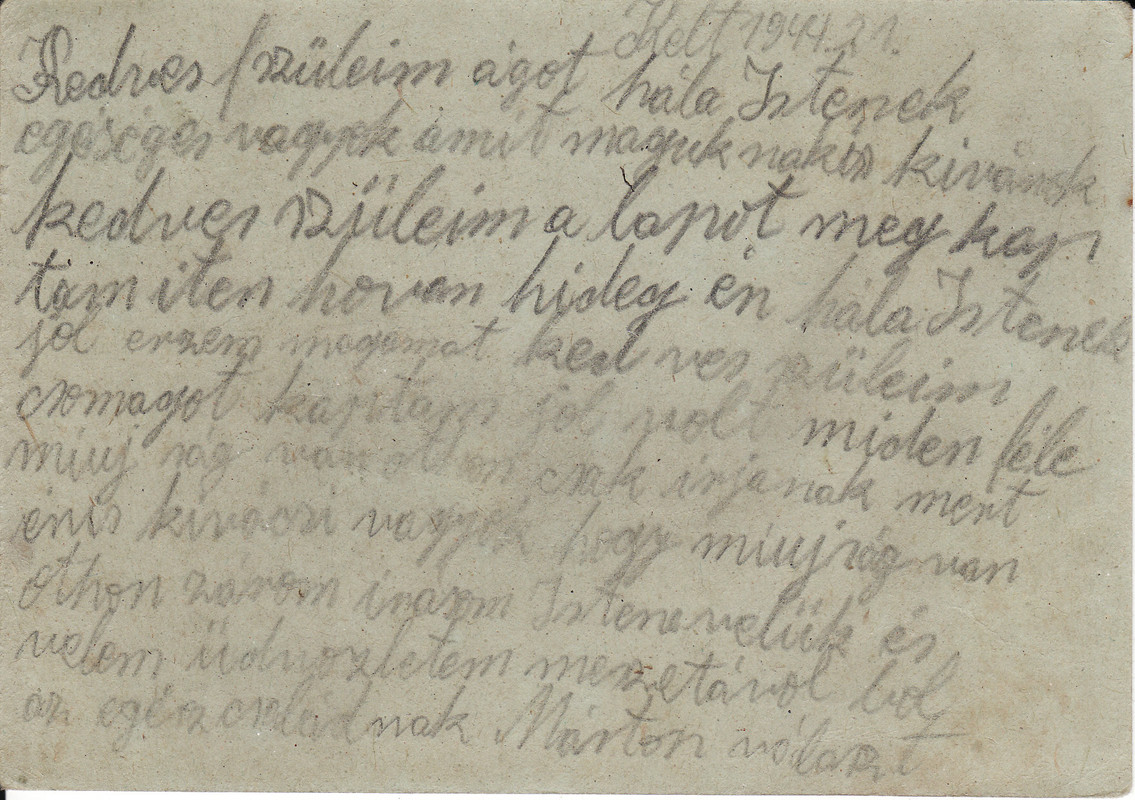 Kelt 1944. 21.
Kedves szüleim ágot hála Istenek
egeséges vagyok amit maguknakis kivánok
kedves szüleim a lapot meg kap
tam iten hovan hideg én hála Istenek
jól erzem magamat ked ves szüleim
csomagot kaptam jól volt miden féle
miuj ság van csak irjanak mert
énis kiváczi vagyok hogy miujság van
othon zárom irásom Istenevelük és
velem üdvozletem meszetávol bol
az egész családnak Márton választ